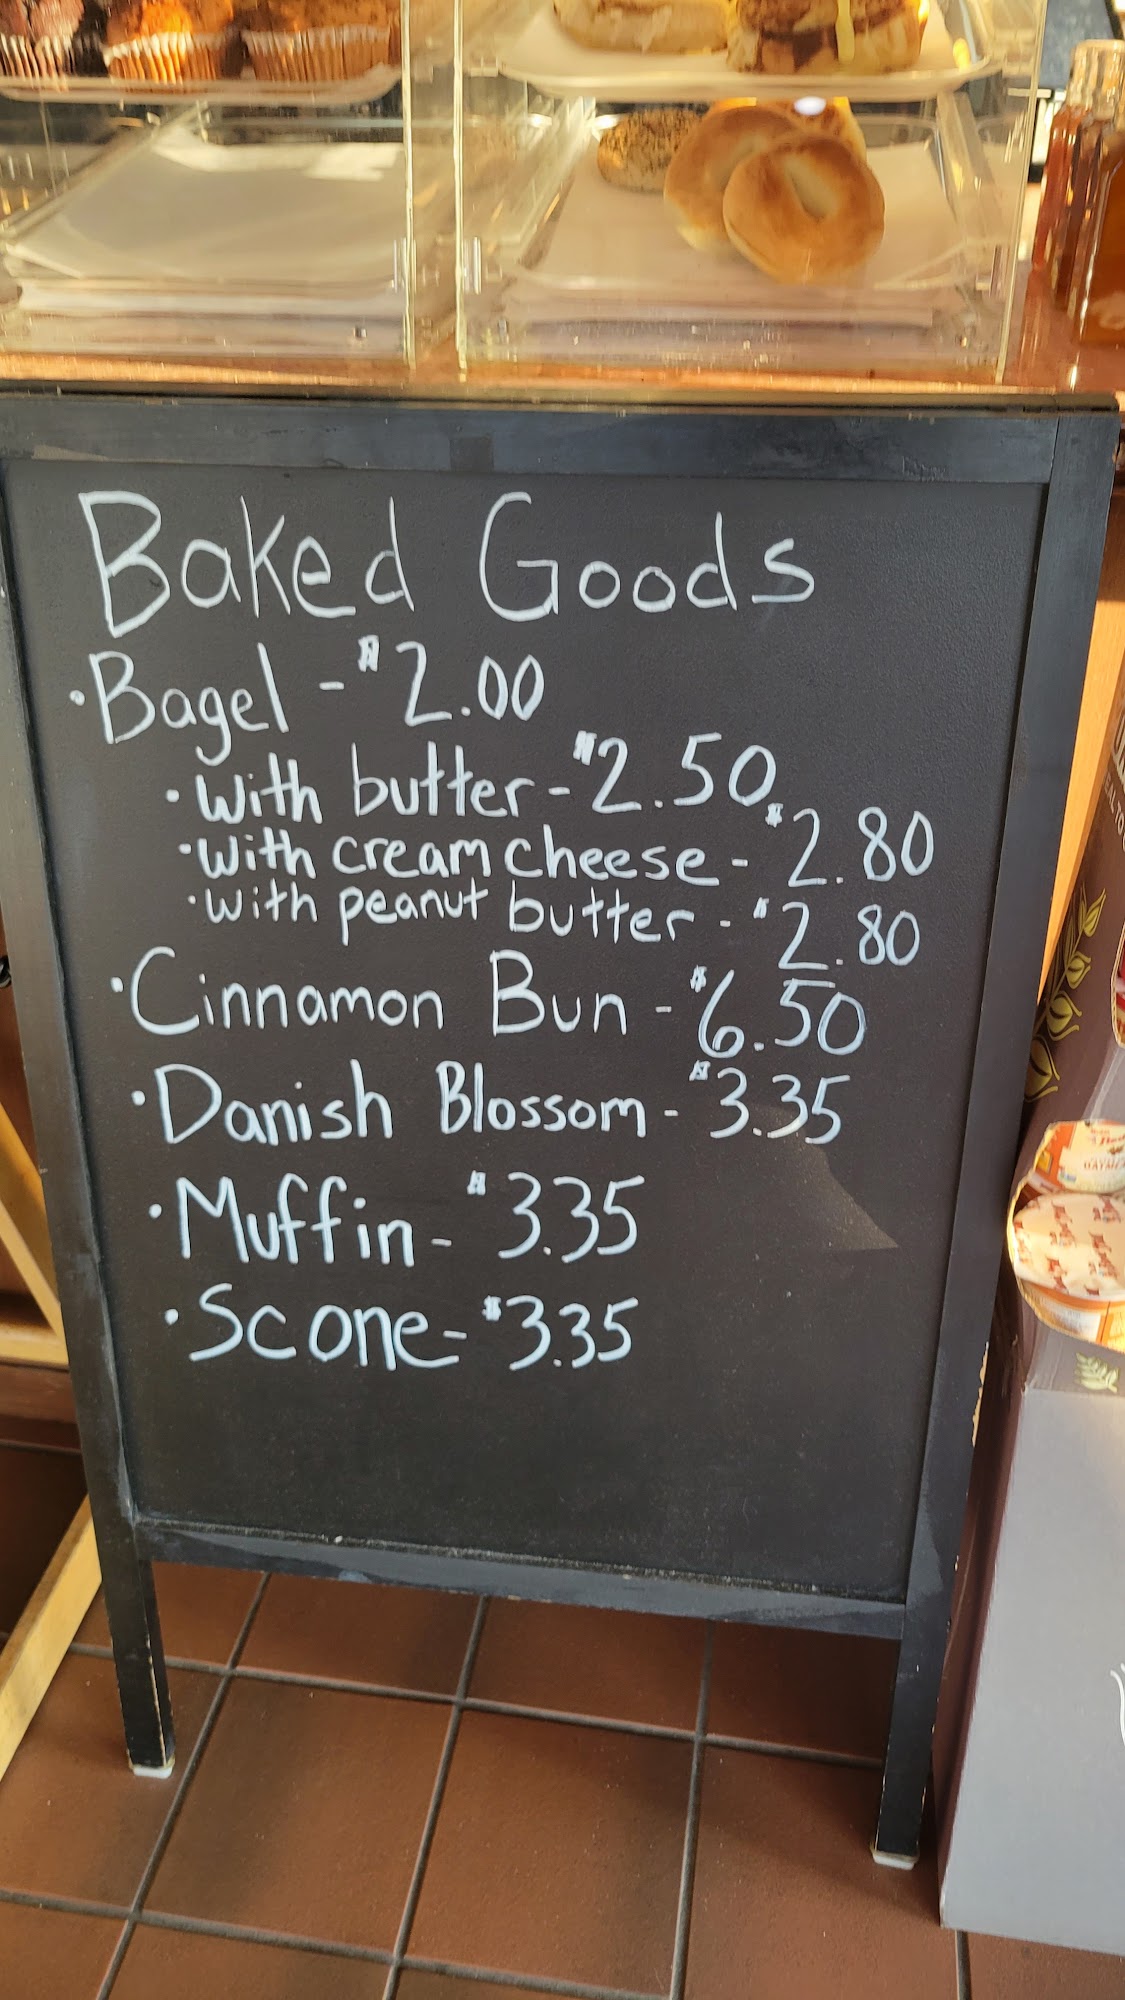 Baked Goods
·Bagel - $2.00
·With butter - $2.50
·With cream cheese - $2.80
·With peanut butter - $2.80
·Cinnamon Bun - $6.50
·Danish Blossom - $3.35
·Muffin - $3.35
·Scone - $3.35
OATMEAL